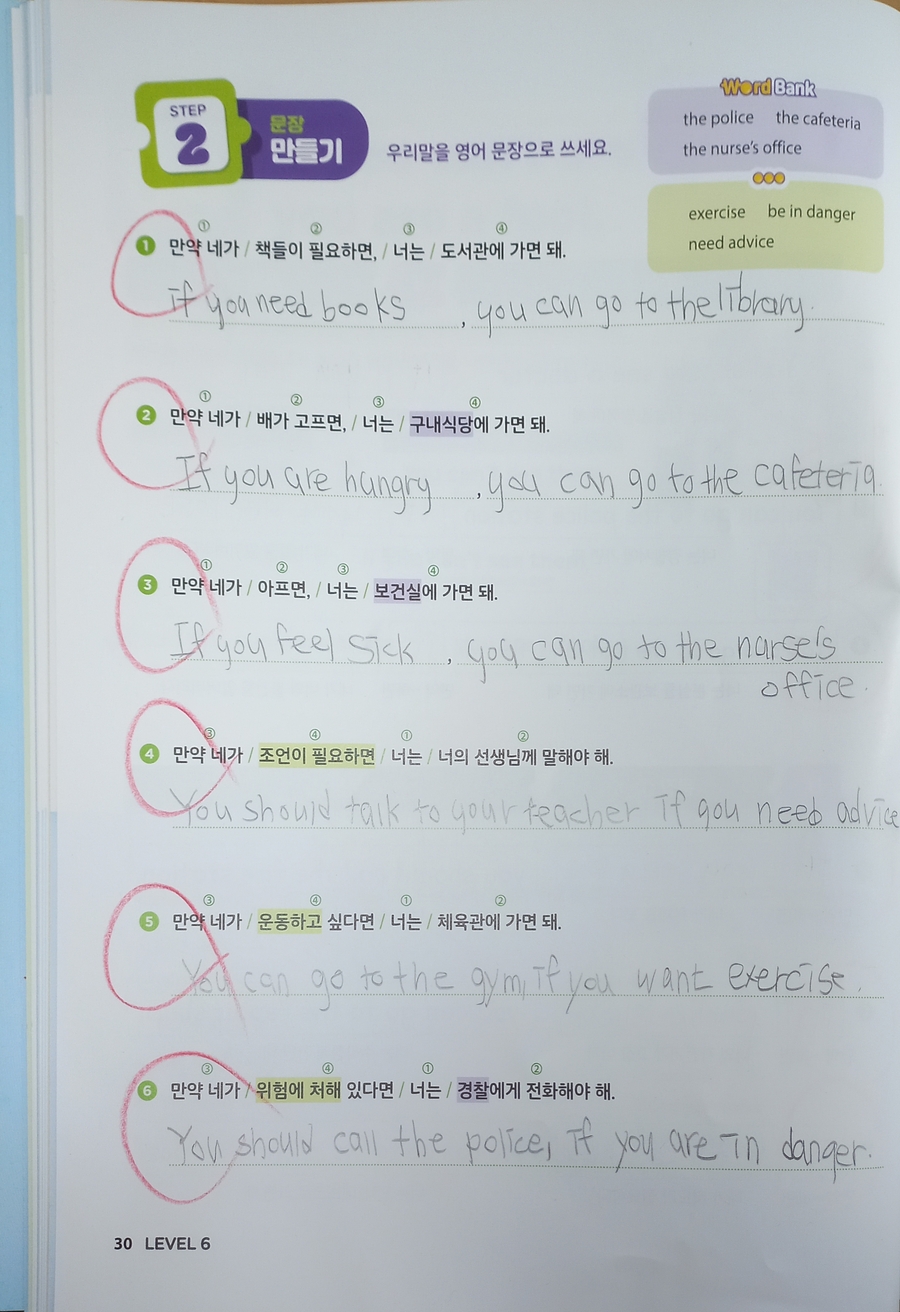 STEP
2
문장
만들기
우리말을 영어 문장으로 쓰세요.
Word Bank
the police the cafeteria
the nurse's office
exercise be in danger
need advice
① ② ③ ④
1 만약 네가 / 책들이 필요하면, / 너는 / 도서관에 가면 돼.
if you need books , you can go to the library.
① ② ③ ④
2 만약 네가 / 배가 고프면, / 너는 / 구내식당에 가면 돼.
If you are hungry , you can go to the cafeteria.
① ② ③ ④
3 만약 네가 / 아프면, / 너는 / 보건실에 가면 돼.
If you feel sick , you can go to the narse's
office.
③ ④ ① ②
4 만약 네가 / 조언이 필요하면 / 너는 / 너의 선생님께 말해야 해.
You should talk to your teacher if you need advice
③ ④ ① ②
5 만약 네가 / 운동하고 싶다면 / 너는 / 체육관에 가면 돼.
You can go to the gym, if you want exercise.
③ ④ ① ②
6 만약 네가 / 위험에 처해 있다면 / 너는 / 경찰에게 전화해야 해.
You should call the police, if you are in danger.
30 LEVEL 6